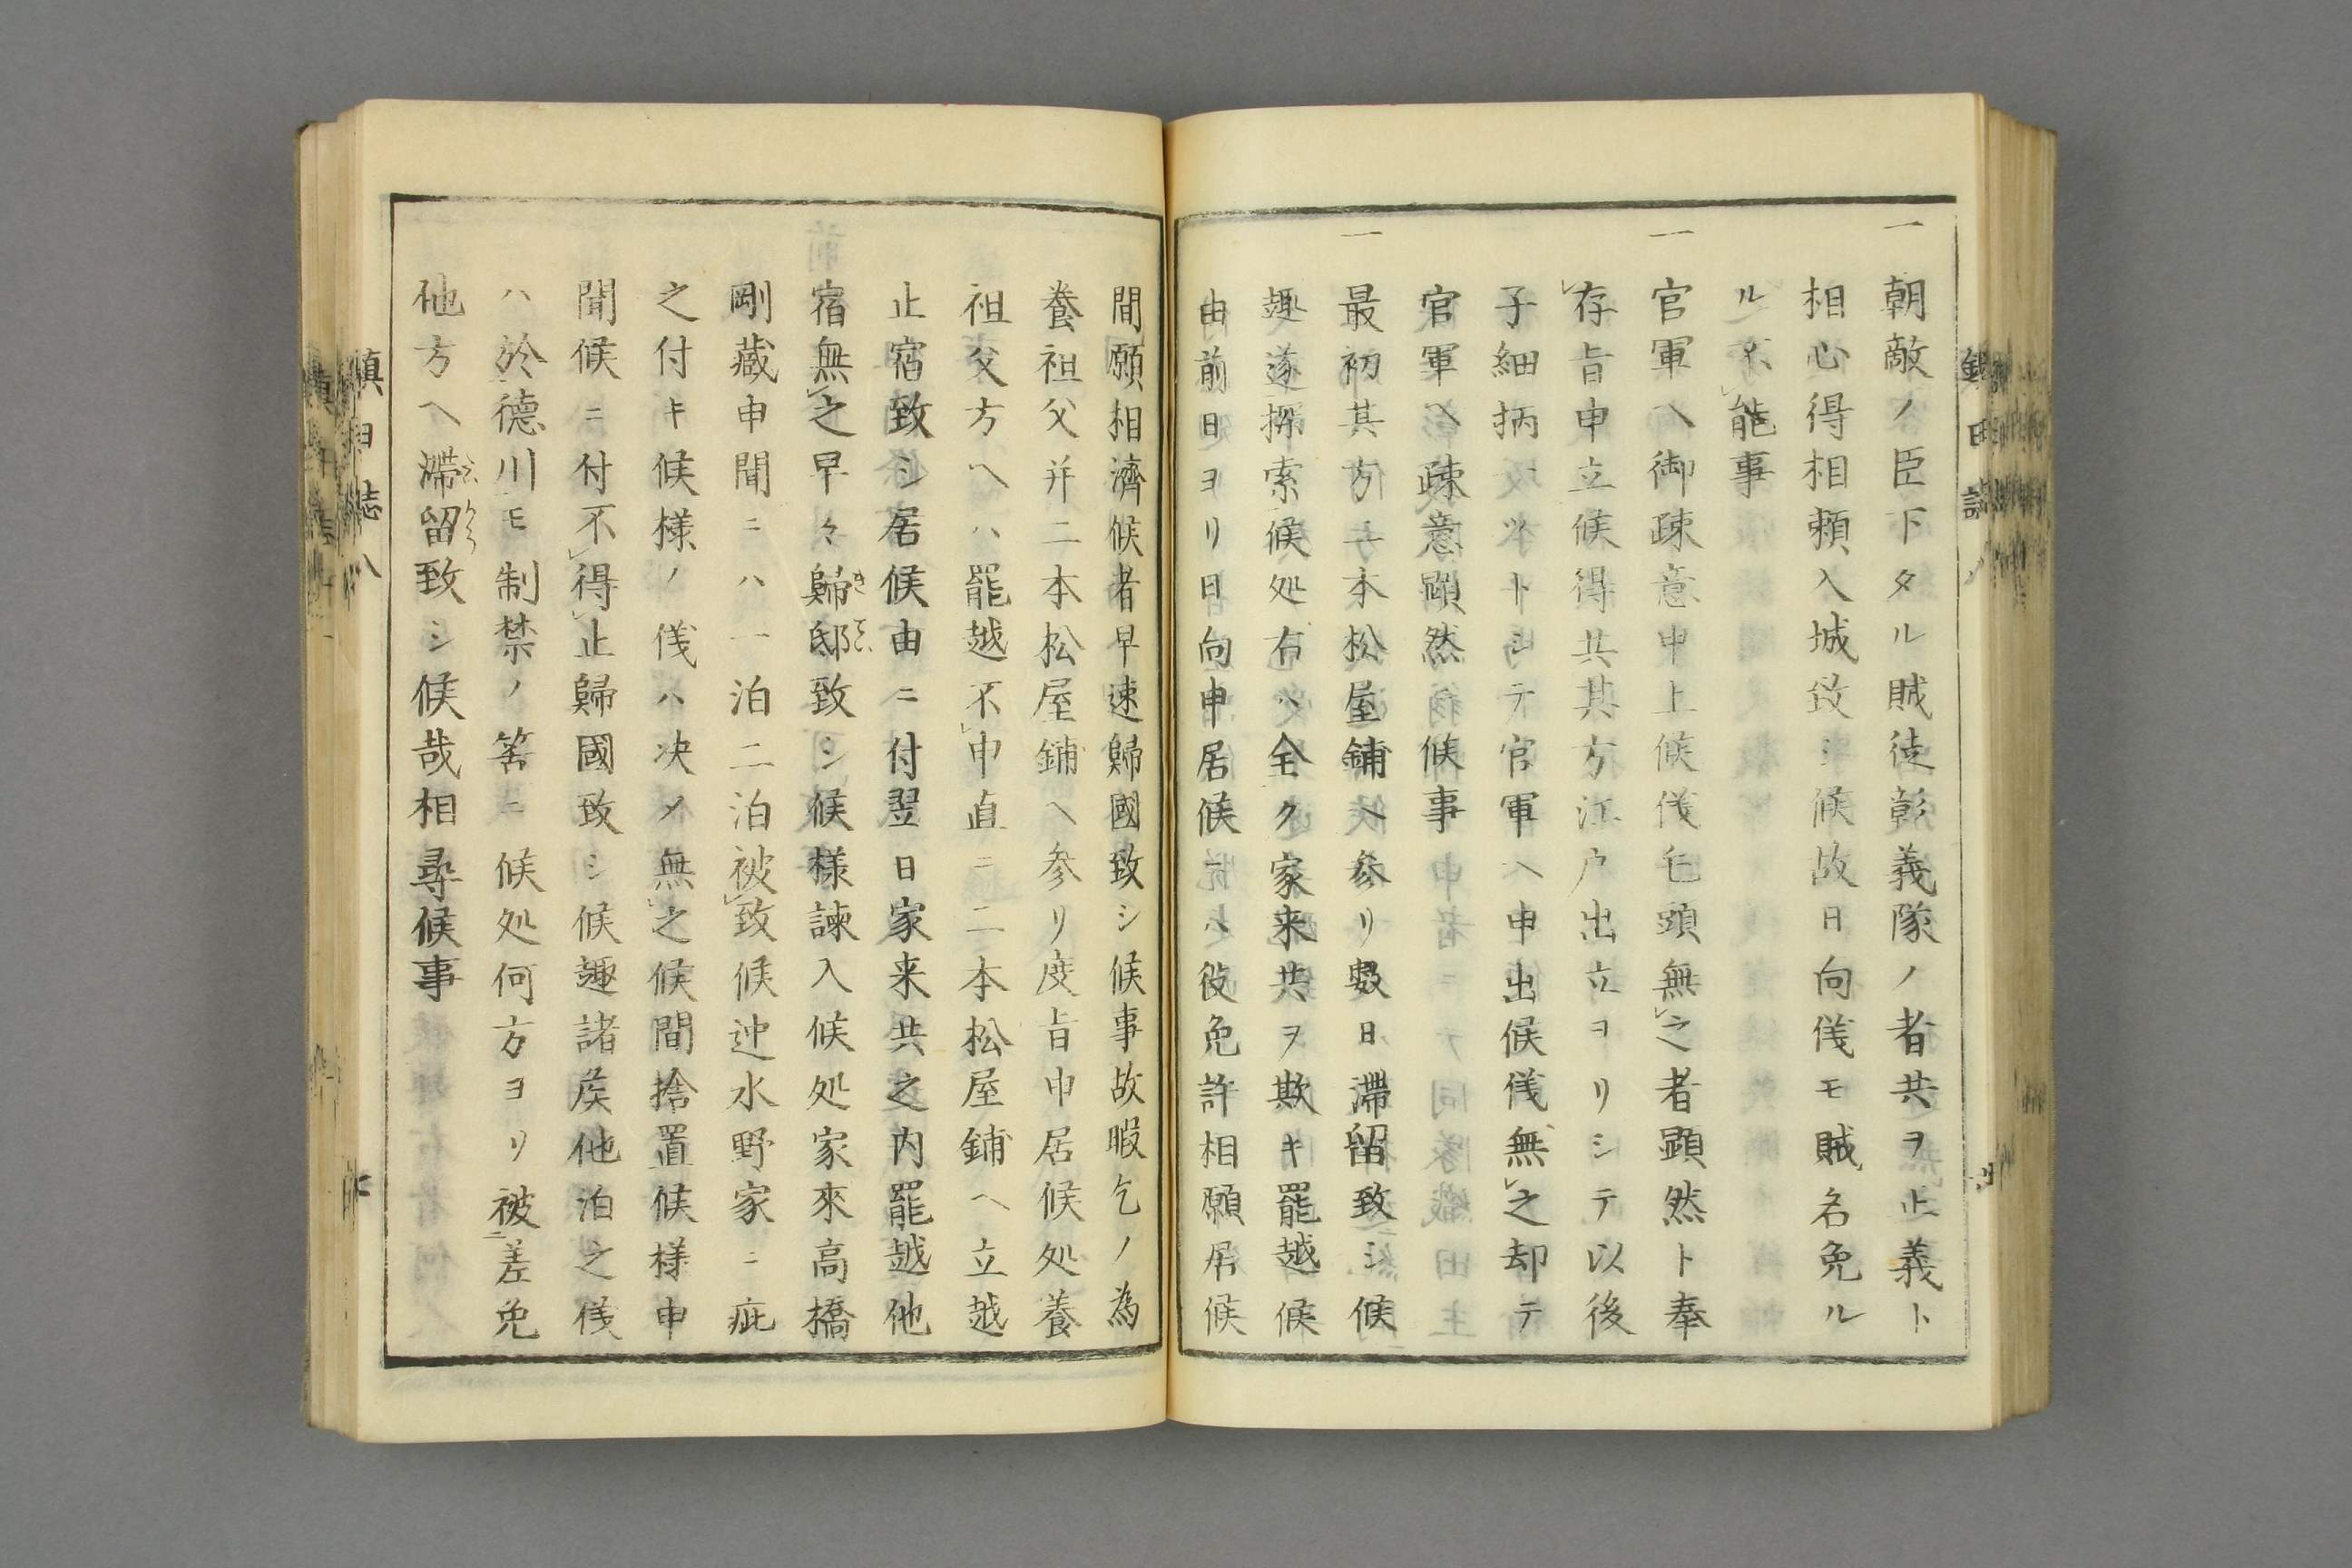 一朝敵ノ臣下タル賊徒彰義隊ノ者共ヲ止義ト
相心得相頼入城致シ候故日向儀モ賊名免ル
ル不能事
一官軍ヘ御疎意申上候儀毛頭無之者顕然ト奉
存旨申立候得共其方江戸出立ヨリシテ以後
子細柄以トシテ官軍ヘ申出候儀無之却テ
官軍ヘ疎意顕然候事
一最初其方ニ本松屋鋪ヘ参リ数日滞留致シ候
趣遂探索候処右ハ全ク家来共ヲ欺キ罷越候
由前日ヨリ日向申居候ニハ役免許相願居候
間願相濟候者早速歸國致シ候事故暇乞ノ為
養祖父并二本松屋鋪ヘ参リ度旨申居候処養
祖父方ヘハ罷越不申直ニ二本松屋鋪ヘ立越
止宿致シ居候由ニ付翌日家来共之内罷越他
宿無之早々歸邸致シ候様諫入候処家來高橋
剛藏申聞ニハ一泊二泊被致候迚水野家ニ疵
之付キ候様ノ儀ハ决メ無之候間捨置候様申
聞候ニ付不得止歸國致シ候趣諸矦他泊之儀
ハ於德川モ制禁ノ筈ニ候処何方ヨリ被差免
他方ヘ滯留致シ候哉相尋候事
慎申誌八